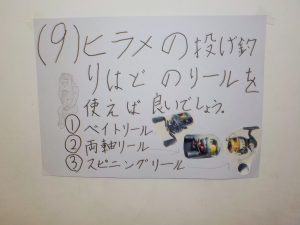 (9)ヒラメの投げ釣
りはどのリールを
使えば良いでしょう。
①ベイトリール
②両軸リール
③スピニングリール